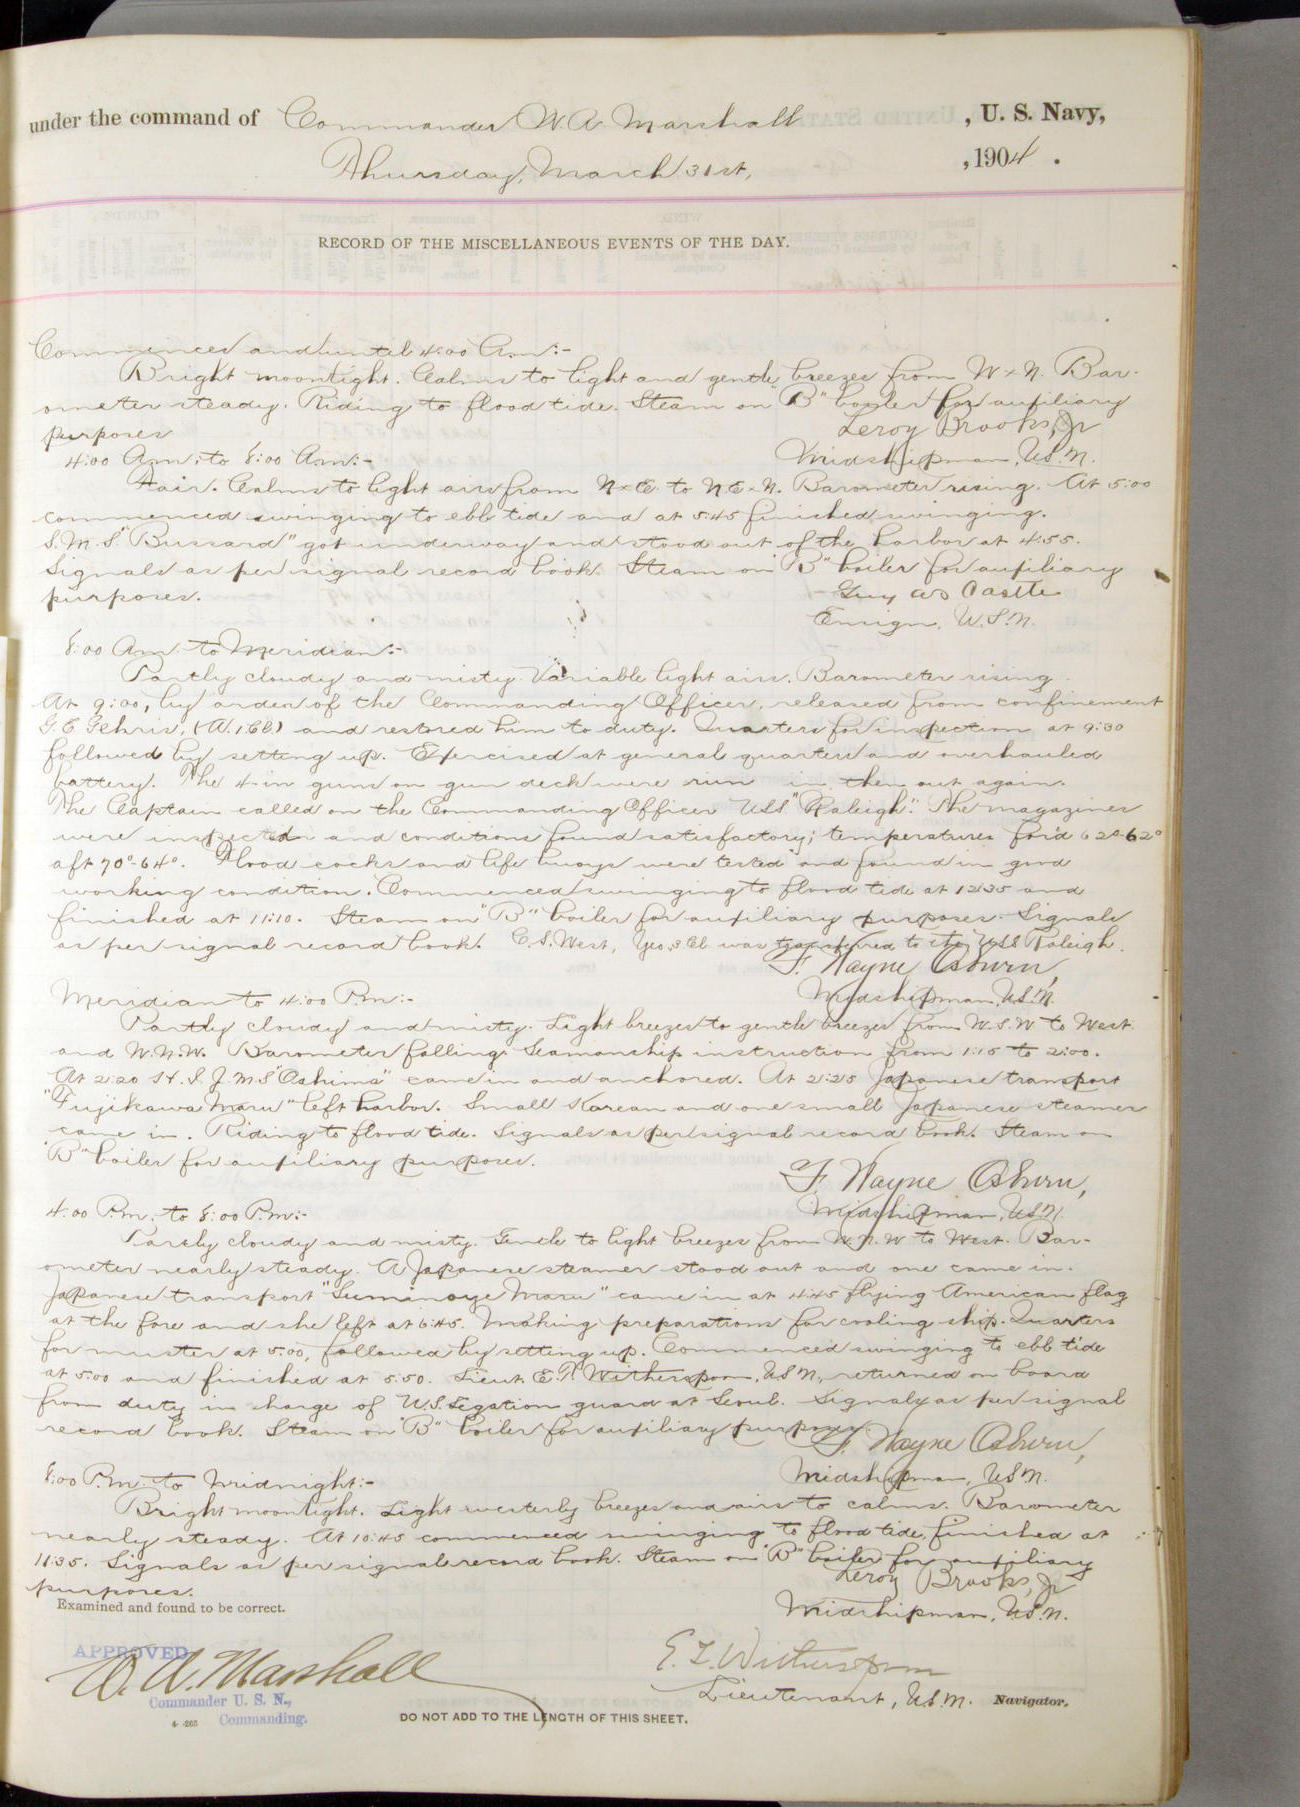 under the command of Commander W. A. Marshall, U. S. Navy,
Thursday, March 31st, 1904.
RECORD OF THE MISCELLANEOUS EVENTS OF THE DAY.
Commences and until 4:00 A.m.:-
Bright moonlight. Calms to light and gentle breezes from W x N. Bar-
ometer steady. Riding to flood tide. Steam on "B" boiler for auxiliary
purposes
Leroy Brooks, Jr
4:00 A.m. to 8:00 A.m.:-
Midshipman, U.S.N.
Fair. Calms to light airs from N x E. to N E x N. Barometer rising. At 5:00
commenced swinging to ebb tide and at 5:45 finished swinging.
S.M.S. "Bussard" got underway and stood out of the harbor at 4:55.
Signals as per signal record book. Steam on "B" boiler for auxiliary
purposes.
Guy W S Castle
Ensign, U.S.N.
8:00 A.m. to Meridian:-
Partly cloudy and misty. Variable light airs. Barometer rising
At 9:00, by order of the Commanding Officer, released from confinement
G. E. Gehris, (W. 1. Cl) and restored him to duty. Quarters for inspection at 9:30
followed by setting up. Exercised at general quarters and overhauled
battery. The 4-in guns on gun deck were run in then out again.
The Captain called on the Commanding Officer U.S.S. "Raleigh". The magazines
were inspected and conditions found satisfactory; temperatures for'd 62°-62°
aft 70°-64°. Flood cocks and life buoys were tested and found in good
working condition. Commenced swinging to flood tide at 12:35 and
finished at 11:10. Steam on "B" boiler for auxiliary purposes. Signals
as per signal record book. C. S. West, Yeo. 3 Cl. was transferred to the U.S.S. Raleigh.
F. Wayne Osburn,
Midshipman, U.S.N.
Meridian to 4:00 P.m:-
Partly cloudy and misty. Light breezes to gentle breezes from W.S.W to West.
and W.N.W. Barometer falling. Seamanship instruction from 1:15 to 2:00.
At 2:20 H. I. J. M. S. "Oshima" came in and anchored. At 2:25 Japanese transport
"Fujikawa Maru" left harbor. Small Korean and one small Japanese steamer
came in. Riding to flood tide. Signals as per signal record book. Steam on
"B" boiler for auxiliary purposes.
F. Wayne Osburn,
Midshipman, U.S.N.
4:00 P.m. to 8:00 P.m:-
Partly cloudy and misty. Gentle to light breezes from W.N.W to West. Bar-
ometer nearly steady. A Japanese steamer stood out and one came in.
Japanese transport "Suminoye Maru" came in at 4:45 flying American flag
at the fore and she left at 6:45. Making preparations for coaling ship. Quarters
for muster at 5:00, followed by setting up. Commenced swinging to ebb tide
at 5:00 and finished at 5:50. Lieut. E. T. Witherspoon, U.S.N., returned on board
from duty in charge of U.S. Legation guard at Seoul. Signals as per signal
record book. Steam on "B" boiler for auxiliary purposes
F. Wayne Osburn,
Midshipman, U.S.N.
8:00 P.m. to Midnight:-
Bright moonlight. Light westerly breezes and airs to calms. Barometer
nearly steady. At 10:45 commenced swinging to flood tide, finished at
11:35. Signals as per signal record book. Steam on "B" boiler for auxiliary
purposes.
Leroy Brooks, Jr
Midshipman, U.S.N.
Examined and found to be correct.
APPROVED
W. A. Marshall
Commander U. S. N.,
Commanding.
E. T. Witherspoon
Lieutenant, U.S.N. Navigator.
4-265
DO NOT ADD TO THE LENGTH OF THIS SHEET.